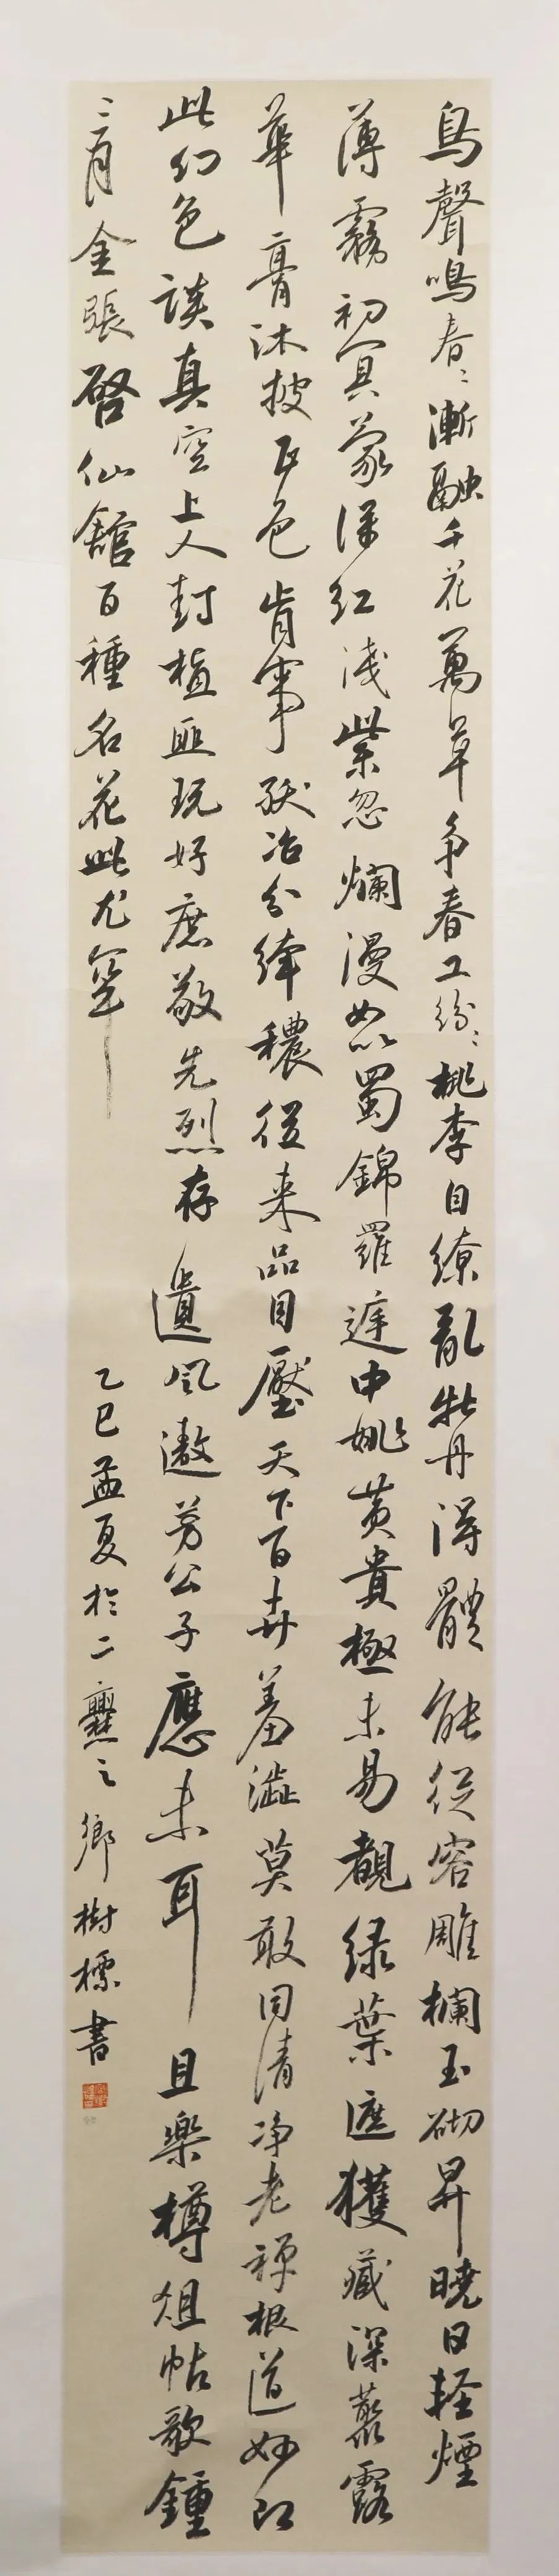 鳥聲鳴春〻漸融千花萬草爭春工紛〻桃李自繚亂牡丹得體能從容雕欄玉砌昇曉日輕煙
薄霧初冥蒙深紅淺紫忽爛漫如以蜀錦羅庭中姚黃貴極未易觀綠葉遮獲藏深叢露
華膏沐披正色肯事妖冶分纖穠從来品目壓天下百卉羞澁莫敢同清净老禪根道妙即
此幻色談真空上人封植匪玩好庶敬先烈存遺風遨芳公子應未耳且樂樽俎怗歌鍾
三月金張啓仙館百種名花此尤罕
乙巳孟夏於二爨之鄉樹標書